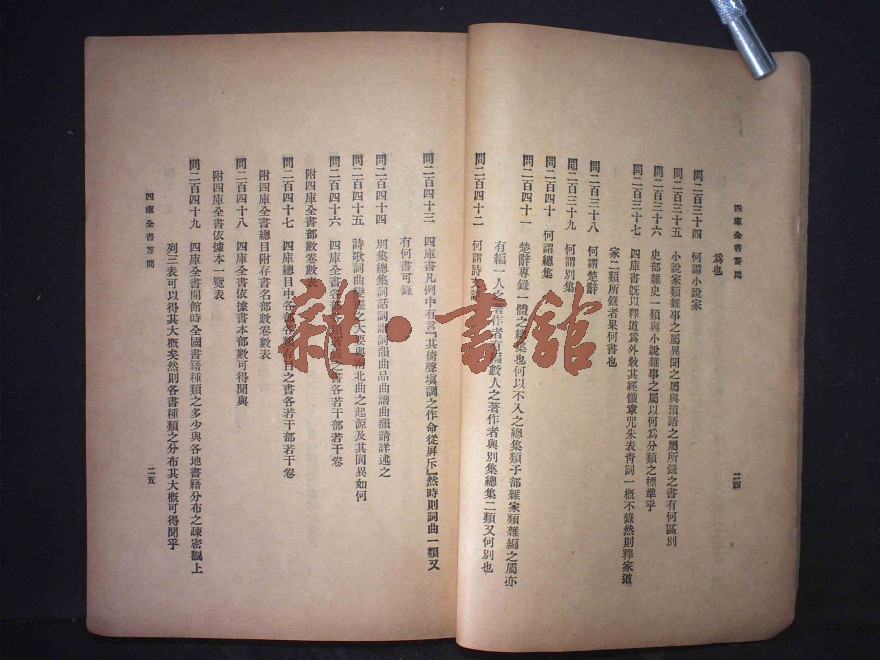 四庫全書答問
二四
爲也
問二百三十四 何謂小說家
問二百三十五 小說家類雜事之屬異聞之屬與瑣語之屬所錄之書有何區別
問二百三十六 史部雜史一類與小說雜事之屬以何爲分類之標準乎
問二百三十七 四庫書旣以釋道爲外敎其經懺章咒朱表靑詞一概不錄然則釋家道
家二類所錄者果何書也
問二百三十八 何謂楚辭
問二百三十九 何謂別集
問二百四十 何謂總集
問二百四十一 楚辭專錄一體之總集也何以不入之總集類子部雜家類雜編之屬亦
有編一人之著作者有編數人之著作者與別集總集二類又何別也
問二百四十二 何謂詩文評
問二百四十三 四庫書凡例中有言『其倚聲塡調之作命從屛斥』然時則詞曲一類又
有何書可錄
問二百四十四 別集總集詞話詞譜詞韻曲品曲譜曲韻請詳述之
問二百四十五 詩歌詞曲之大要與南北曲之起源及其同異如何
問二百四十六 四庫全書各部各類著錄之書各若干部若干卷
附四庫全書部數卷數表
問二百四十七 四庫總目中各部各類存目之書各若干部若干卷
附四庫全書總目附存書名部數卷數表
問二百四十八 四庫全書依據書本部數可得聞與
附四庫全書依據本一覽表
問二百四十九 四庫全書開館時全國書籍種類之多少與各地書籍分布之疎密觀上
列三表可以得其大概矣然則各書種類之分布其大概可得聞乎
四庫全書答問
二五
雜·書館